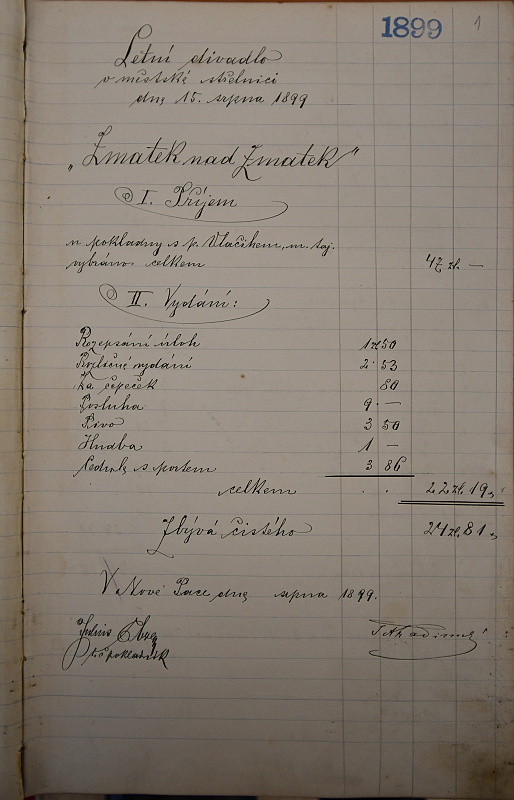 1899 1
Letní divadlo
v městské střelnici
dne 15. srpna 1899
„Zmatek nad Zmatek“
I. Příjem
u pokladny s p. Vlačihem, m. taj.
vybráno celkem 47 zl. —
II. Vydání:
Rozepsání úloh 1 zl 50
Rozličné vydání 2 · 53
Za čepeček 80
Posluha 9 · —
Pivo 3 50
Hudba 1 —
Cedule s portem 3 86
celkem . . 22 zl. 19 „
Zbývá čistého 24 zl. 81 „
V Nové Pace dne srpna 1899.
Julius
t. č. pokladník